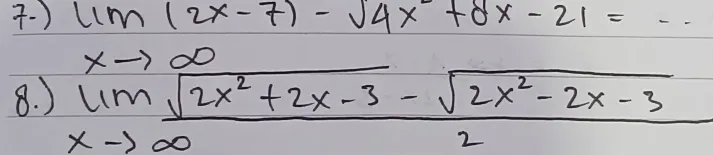 7.) lim (2x-7) - √4x² + 8x - 21 = ...
x → ∞
8.) lim √2x² + 2x - 3 - √2x² - 2x - 3
x → ∞ 2